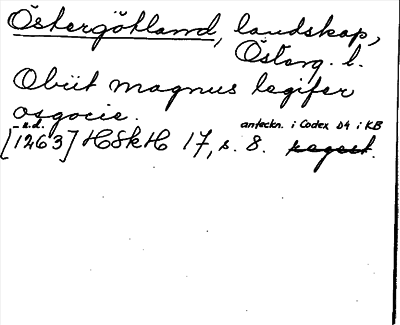 Östergötland, landskap,
Österg. l.
Obiit magnus legifer
osgocie.
- u.d. anteckn. i Codex D4 i KB
[1263] HSkH 17, s. 8. regest.